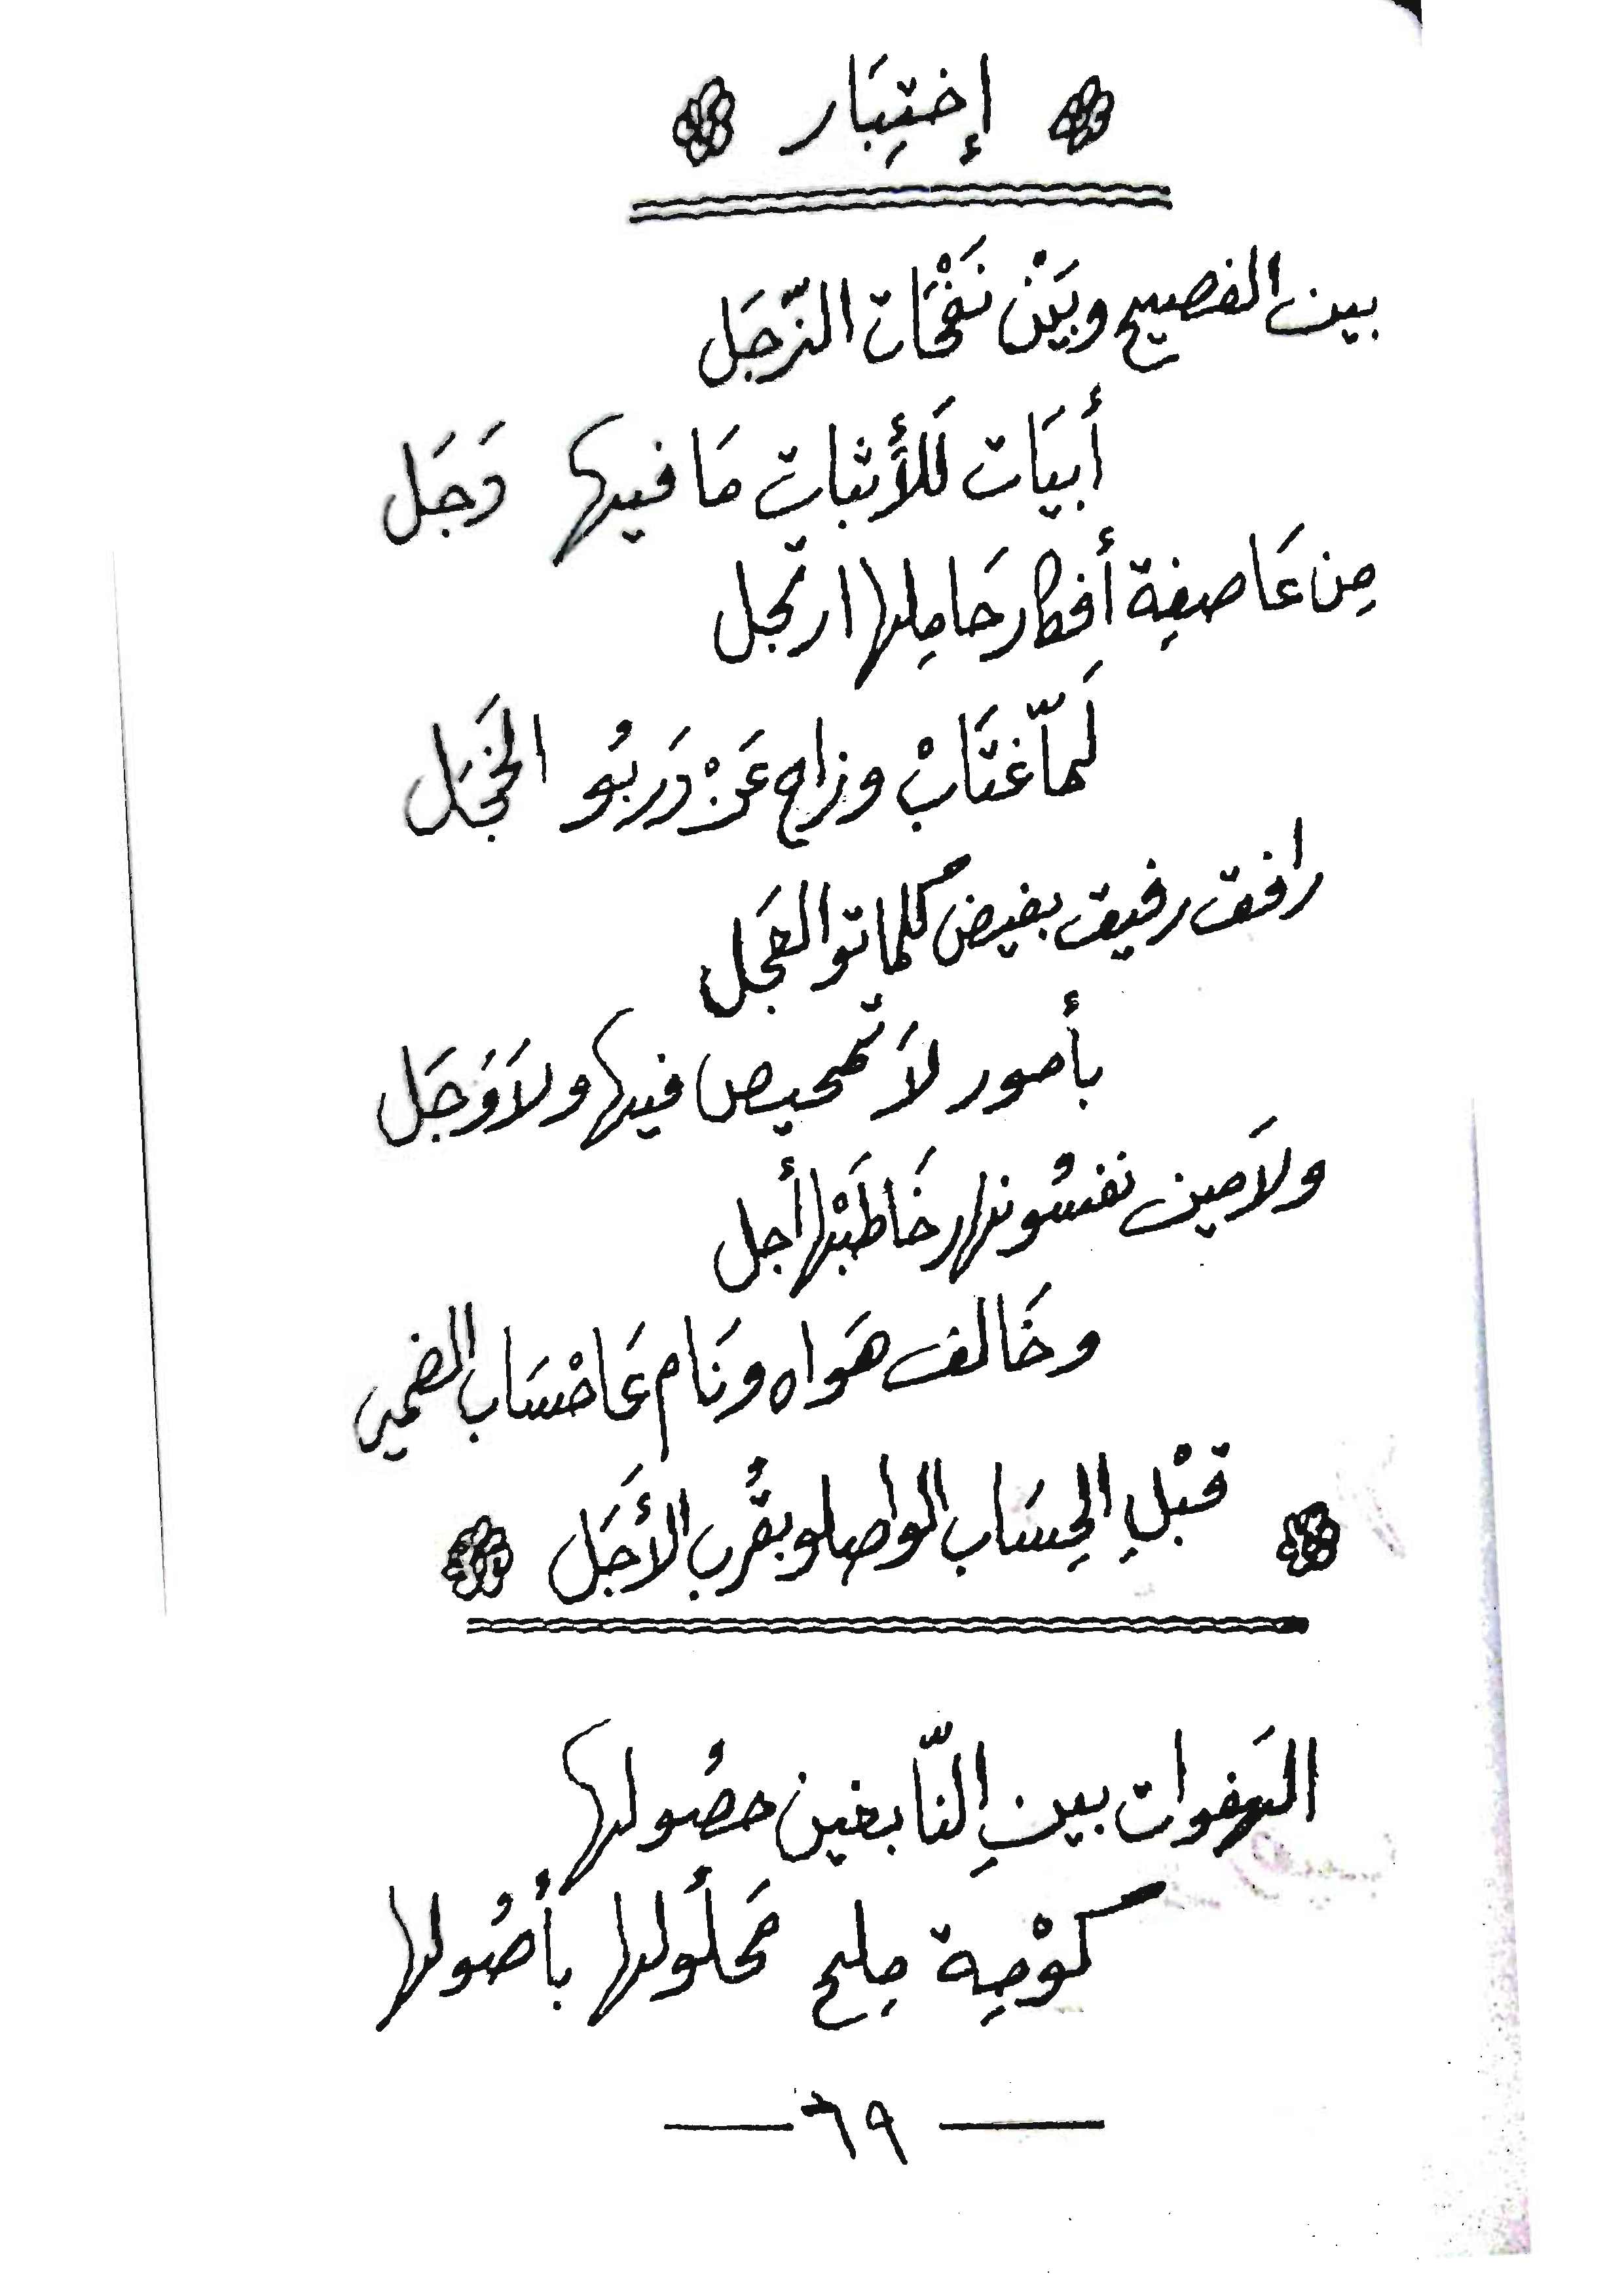 إختِبَار
بين الفصيح وبَيْن نَفْحَات الزّجَل
أبيَات لَلأثبات مَا فيها دَجَل
مِن عَاصفِة أفكار حَامِلها ارتجل
لَمّا غتَابْ وزاح عَنْ دَربُو الخَجَل
رافق رفيق بفيض كلماتو العجَل
بأمور لاَ تمحيص فيها ولاَ وَجَل
ولاَمين نفسُو نهار خَاطَبْها أجل
وخَالف هَواه ونَام عَا حْسَاب الضمير
قبْلِ الحِسَاب الواصلو بقُرب الأجَل
الهَفوات بينِ النّابغين حصُولها
كوْمِة مِلح محَلُولها بأصُولها
— ٦٩ —